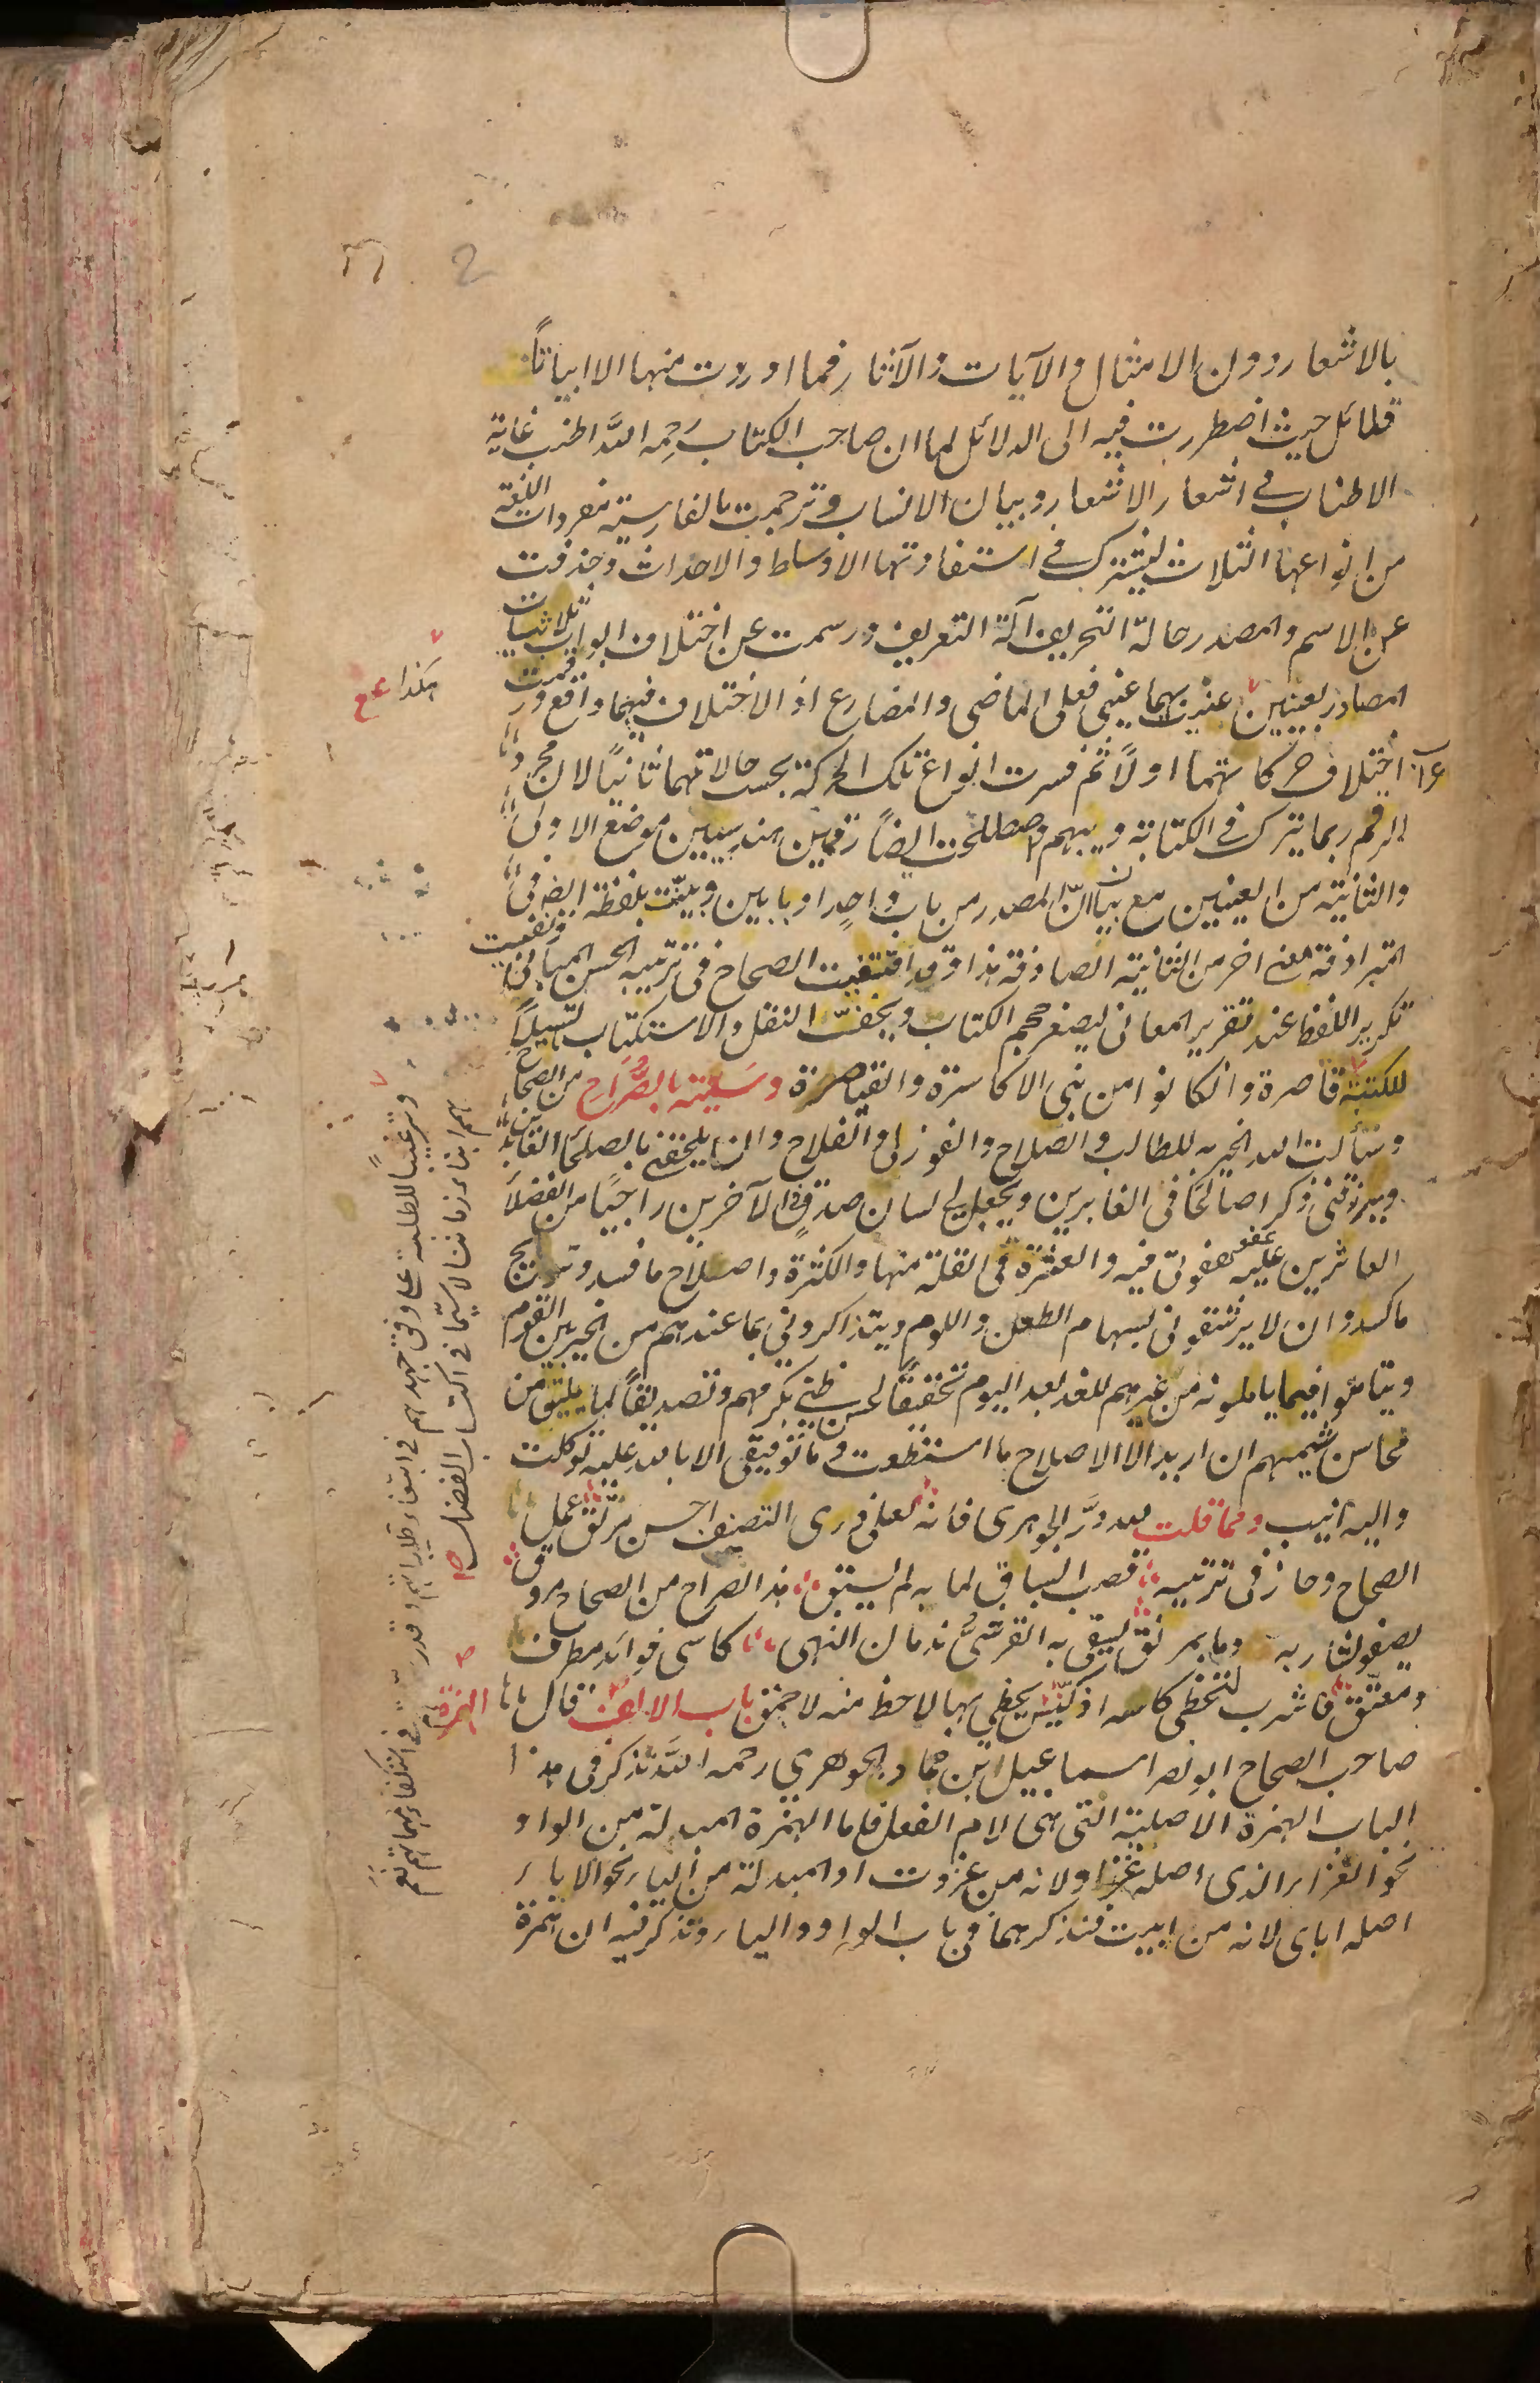 2
بالاشعار دون الامثال والآيات والآثار فما اوردت منها الا ابياتاً
قلائل حيث اضطررت فيه الى الدلائل لما ان صاحب الكتاب رحمه الله اطنب غاية
الاطناب فى اشعار الاشعار وبيان الانساب وترجمت بالفارسية مفردات اللغة
من انواعها الثلاث ليشترك فى استفادتها الاوساط والاحداث وحذفت
عن الاسم والمصدر حالة التحريف آلة التعريف ورسمت عن اختلاف ابواب ثلاثيات
المصادر بعينين عنيت بهما عينى فعلى الماضى والمضارع اذ الاختلاف فيهما واقع ورقمت
هكذا ع ع
اختلاف حركاتهما اولاً ثم فسرت انواع تلك الحركة بحسب حالاتهما ثانياً لان مجرد
الرقم ربما يترك فى الكتابة ويبهم واصطلحت ايضاً رقمين هندسيين موضع الاولى
والثانية من العينين مع بيان ان المصدر من باب واحد او بابين وبينت بلفظة ايضا فى
المترادفة معنى اخر من الثانية الصادفة هذا وقد اقتفيت الصحاح فى ترتيبه الحسن المبانى ونفيت
تكرير اللفظ عند تقرير المعانى ليصغر حجم الكتاب ويخف النقل والاستكتاب تسهيلاً
للكتبة قاصرة وان كانوا من بنى الاكاسرة والقياصرة وسميته بالصراح من الصحاح
وسألت الله الخير به للطالب والصلاح والفوز لى والفلاح وان يلحقنى بالصلحاء القانتين
ويرزقنى ذكراً صالحاً فى الغابرين ويجعل لى لسان صدق فى الآخرين راجياً من الفضلاء
العاثرين عليه عفو هفوتى فيه والعثرة فى القلة منها والكثرة واصلاح ما فسد وترويج
ما كسد وان لا يرشقونى بسهام الطعن واللوم ويتذاكرونى بما عندهم من الخير بين القوم
ويتأملوا فيما ياملونه من غيرهم للغد بعد اليوم تحقيقاً لحسن ظنى بكرمهم وتصديقاً لما يليق من
محاسن شيمهم ان اريد الا الاصلاح ما استطعت وما توفيقى الا بالله عليه توكلت
واليه انيب ومما قلت لله در الجوهرى فانه لعلى ذرى التصنيف احسن مرتقى عمل
الصحاح وحاز فى ترتيبه قصب السباق لما به لم يسبق هذا الصراح من الصحاح مروق
يصفو لشاربه وما بمرنق يسقى به القرشى ندمان النهى كاسى فوائد مطرف
ومعتق فاشرب لتحظى كاسه اذ كيس يحظى بها لاحظ منه لاحمق باب الالف الهمزة قال
صاحب الصحاح ابو نصر اسماعيل ابن حماد الجوهرى رحمه الله نذكر فى هذا
الباب الهمزة الاصلية التى هى لام الفعل فاما الهمزة المبدلة من الواو
نحو الغزاء الذى اصله غزاو لانه من غزوت او المبدلة من الياء نحو الاباء
اصله اباى لانه من ابيت فنذكرهما فى باب الواو والياء ونذكر فيه ان همزة
وترغيباً للطلبة على وفق جهدهم فى ابتغاء طلباتهم وقدر
فى استكفاء مهماتهم
همم ابناء زماننا لا سيما فى اكتساب الفضائل